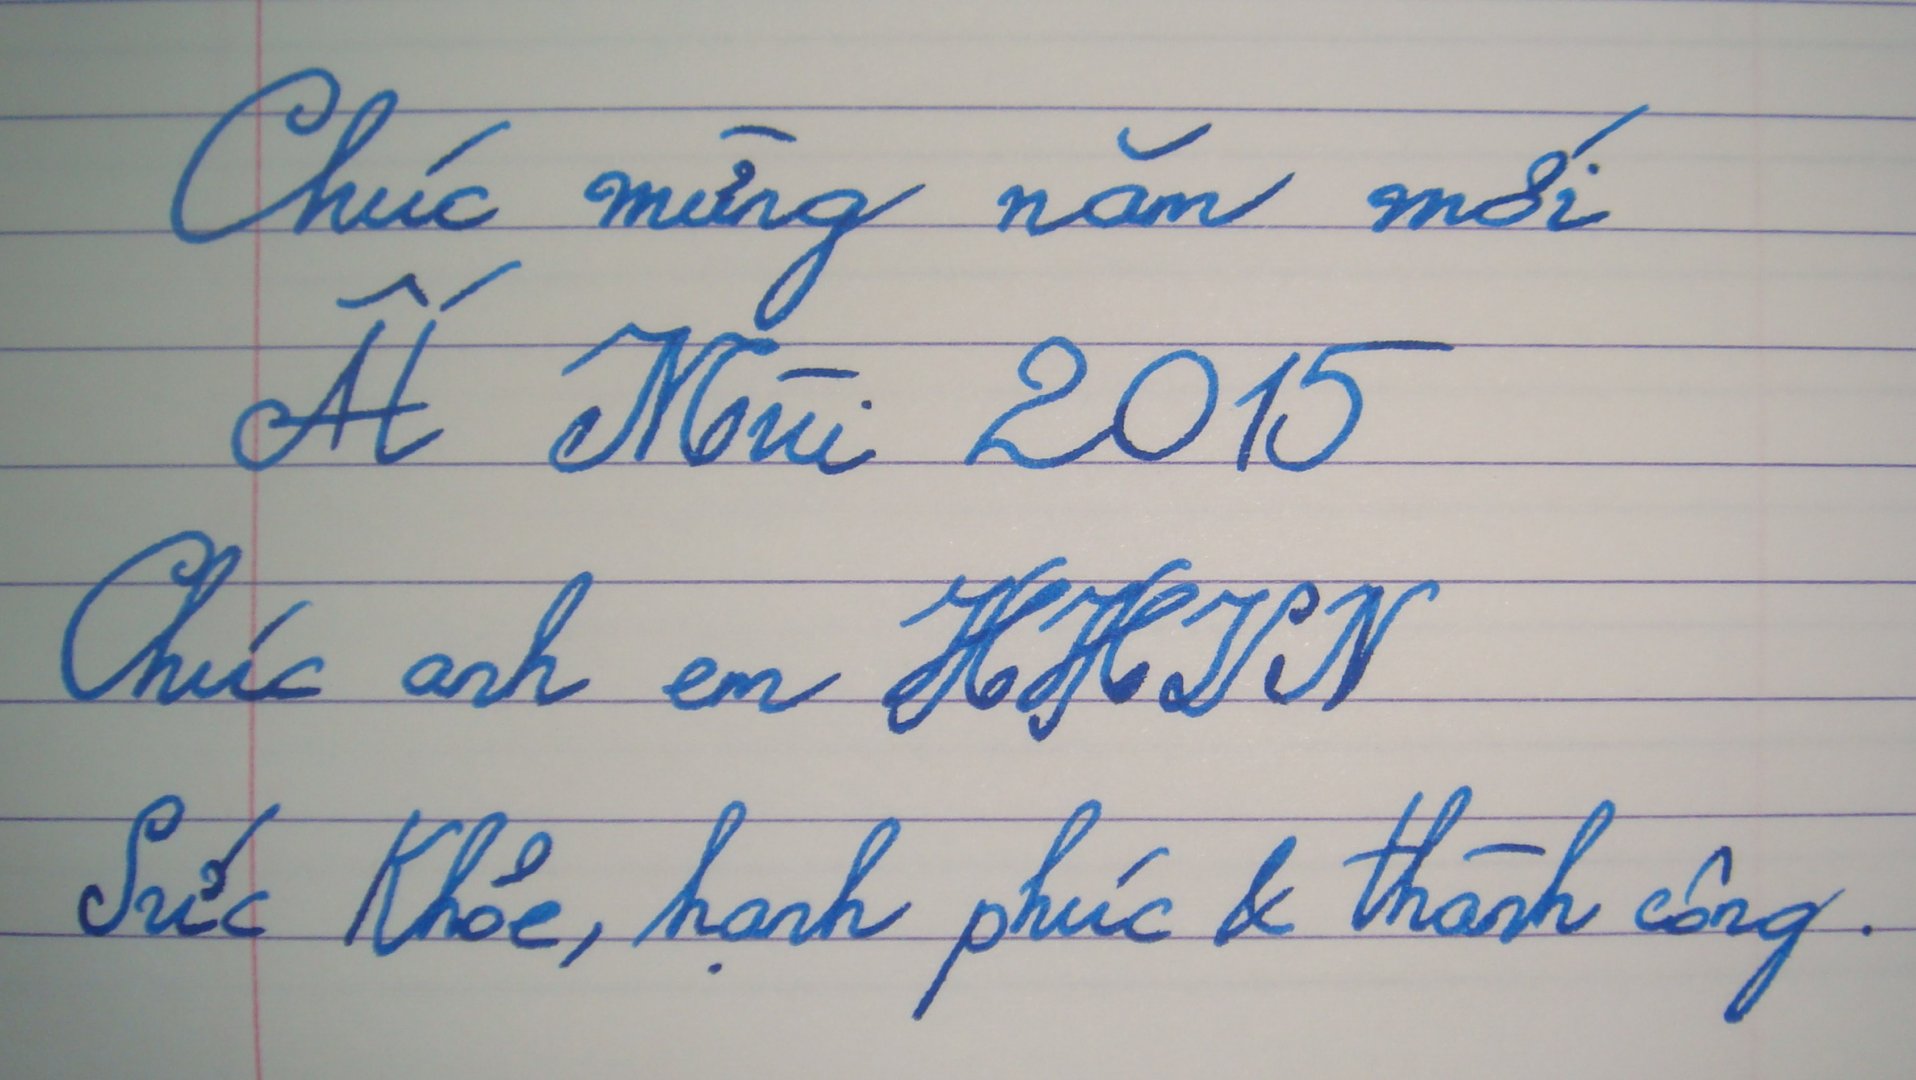 Chúc mừng năm mới
Ất Mùi 2015
Chúc anh em HHVN
Sức Khỏe, hạnh phúc & thành công.